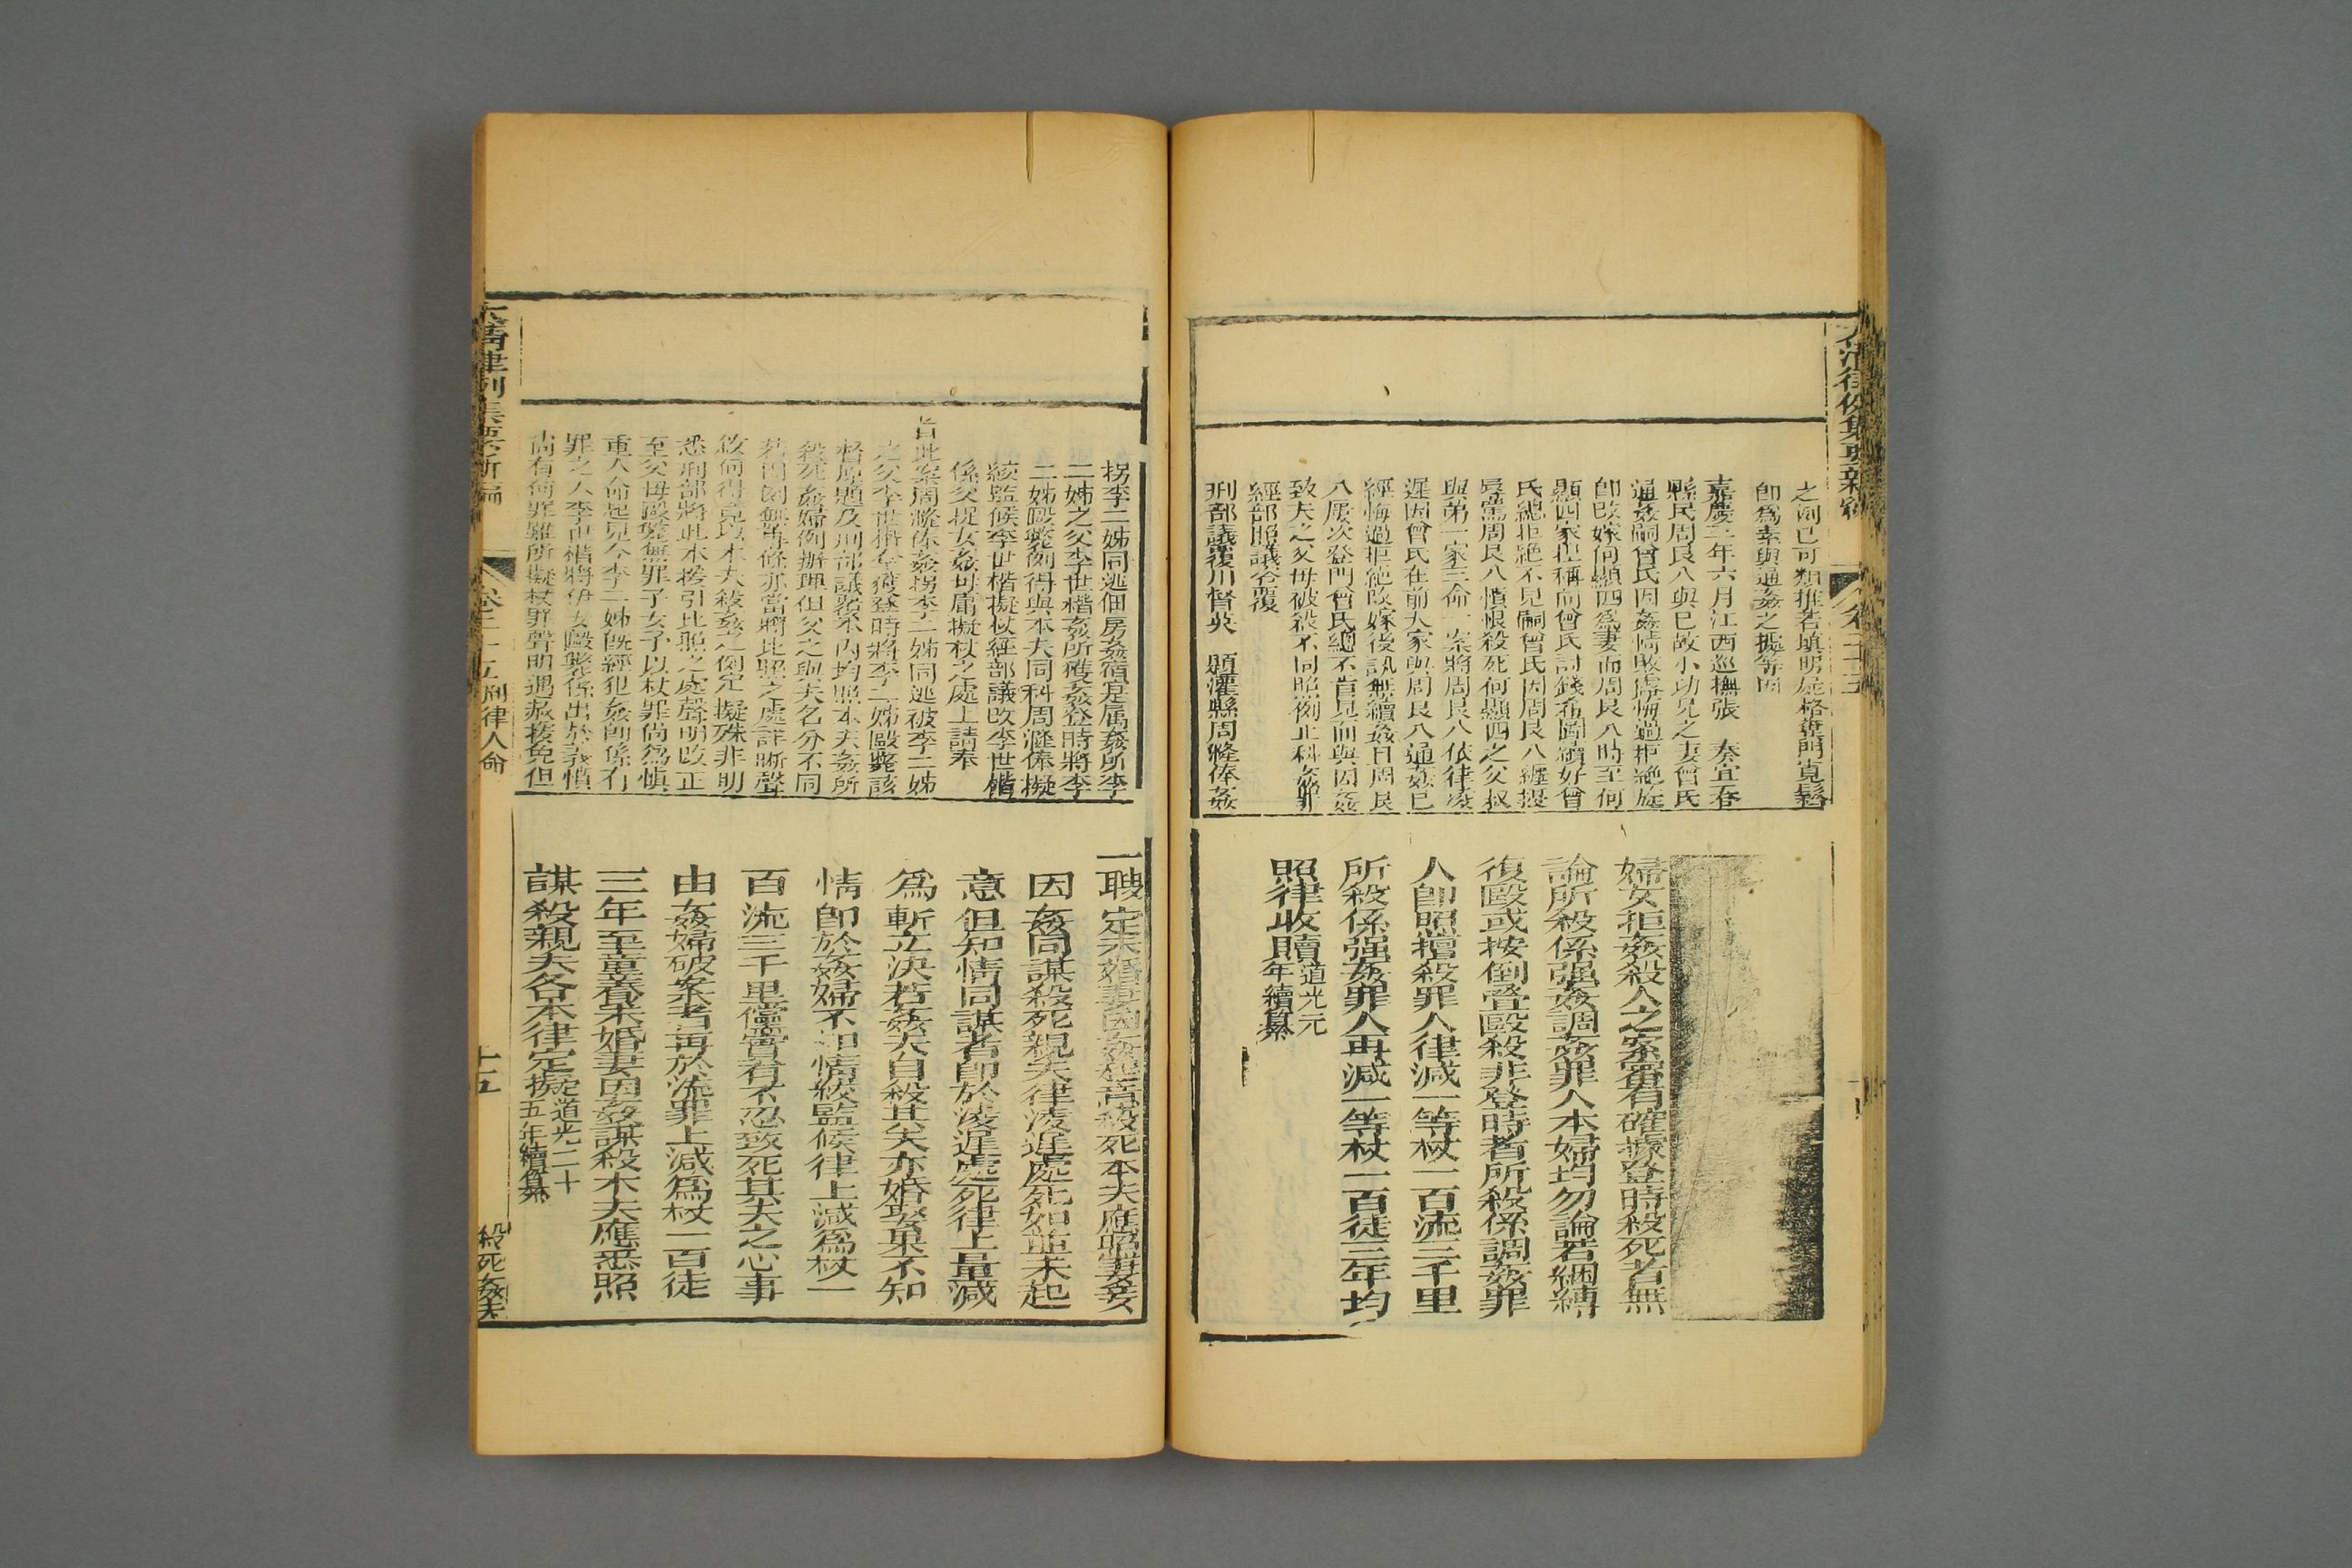 大清律例集要新編
卷二十五
之例已可類推若填明屍格龍門寬鬆
即為素與通姦之據等因
嘉慶二年六月江西巡撫張　奏宜春
縣民周艮八與已故小功兄之妻曾氏
通姦嗣曾氏因姦情敗露悔過拒絕旋
即改嫁何顯四為妻而周艮八時至何
顯四家捏稱向曾氏討錢希圖續好曾
氏總拒絕不見嗣曾氏因周艮八纏擾
辱罵周艮八憤恨殺死何顯四之父叔
與弟一家三命一案將周艮八依律凌
遲因曾氏在前夫家與周艮八通姦已
經悔過拒絕改嫁後訊無續姦日周艮
八屢次登門曾氏總不肯見面與因姦
致夫之父母被殺不同照例止科姦罪
經部照議咨覆
刑部議覆川督英　題灌縣周隆俸姦
婦女拒姦殺人之案審有確據登時殺死者無
論所殺係強姦調姦罪人本婦均勿論若綑縛
復毆或按倒疊毆殺非登時者所殺係調姦罪
人即照擅殺罪人律減一等杖一百流三千里
所殺係强姦罪人再減一等杖一百徒三年均
照律收贖道光元年續纂
拐李二姊同逃佃房姦宿是屬姦所李
二姊之父李世楷姦所獲姦登時將李
二姊毆斃例得與本夫同科周隆俸擬
絞監候李世楷擬杖經部議改李世楷
係父捉女姦毋庸擬杖之處上請奉
旨此案周隆俸姦拐李二姊同逃被李二姊
之父李世楷拿獲登時將李二姊毆斃該
督原題及刑部議罪本內均照本夫姦所
殺死姦婦例辦理但父之與夫名分不同
若因例無專條亦當將比照之處詳晰聲
敘何得竟以本夫殺姦之例定擬殊非明
悉刑部將此本援引比照之處聲明改正
至父母毆斃無罪子女予以杖罪尚為慎
重人命起見今李二姊既經犯姦即係有
罪之人李世楷將伊女毆斃係出於義憤
尚有何罪雖所擬杖罪聲明遇赦援免但
一聘定未婚妻因姦起意殺死本夫應照妻妾
因姦同謀殺死親夫律凌遲處死如並未起
意但知情同謀者即於凌遲處死律上量減
為斬立決若姦夫自殺其夫未婚妻果不知
情即於姦婦不知情絞監候律上減為杖一
百流三千里儻實有不忍致死其夫之心事
由姦婦破案者再於流罪上減為杖一百徒
三年至童養未婚妻因姦謀殺本夫應悉照
謀殺親夫各本律定擬道光二十五年續纂
大清律例集要新編
卷二十五刑律人命
十五
殺死姦夫